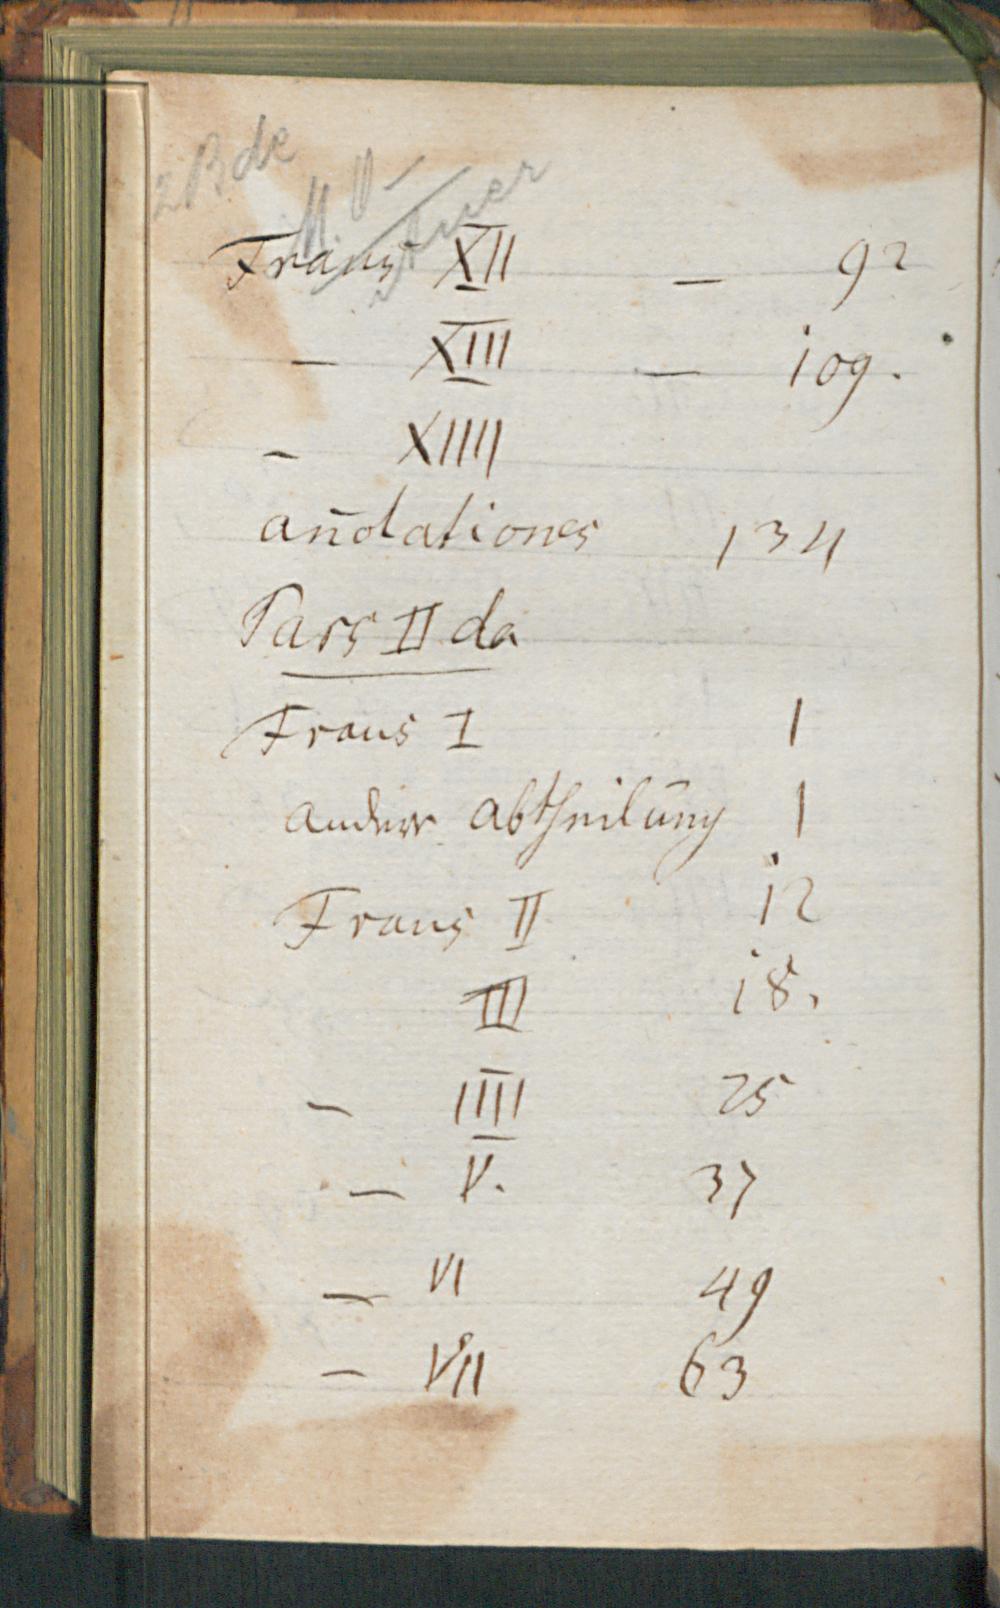 2 Bde
Fraus XII — 92
— XIII — 109.
— XIIII
an̄otationes 134
Pars II da
Fraus I 1
andere abtheilūng 1
Fraus II 12
III 18.
— IIII 25
— V. 37
— VI 49
— VII 63